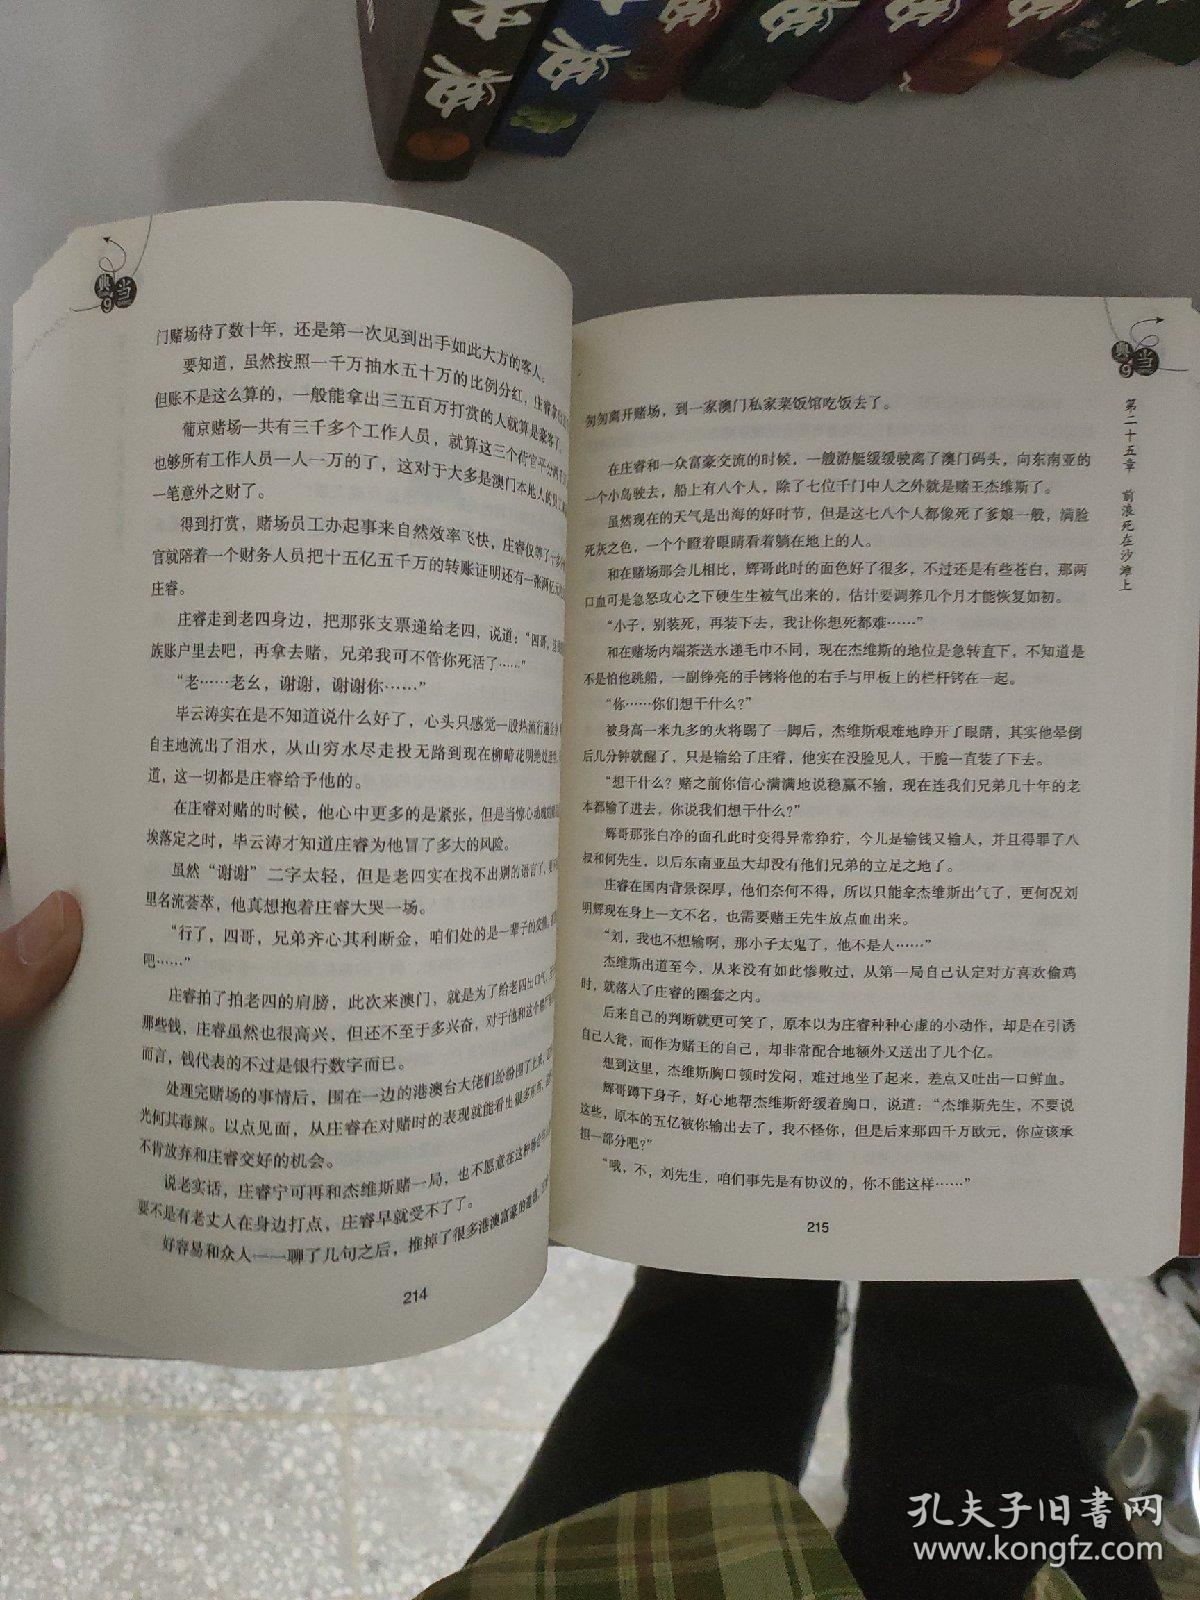 典当
9
门赌场待了数十年，还是第一次见到出手如此大方的客人。
要知道，虽然按照一千万抽水五十万的比例分红，庄睿
但账不是这么算的，一般能拿出三五百万打赏的人就算是豪客了
葡京赌场一共有三千多个工作人员，就算这三个荷官平分
也够所有工作人员一人一万的了，这对于大多是澳门本地人
一笔意外之财了。
得到打赏，赌场员工办起事来自然效率飞快，庄睿仅等了十多
官就陪着一个财务人员把十五亿五千万的转账证明还有一张两亿元
庄睿。
庄睿走到老四身边，把那张支票递给老四，说道：“四哥，
族账户里去吧，再拿去赌，兄弟我可不管你死活了……”
“老……老幺，谢谢，谢谢你……”
毕云涛实在是不知道说什么好了，心头只感觉一股热流行遍全身
自主地流出了泪水，从山穷水尽走投无路到现在柳暗花明绝处逢生
道，这一切都是庄睿给予他的。
在庄睿对赌的时候，他心中更多的是紧张，但是当惊心动魄
埃落定之时，毕云涛才知道庄睿为他冒了多大的风险。
虽然“谢谢”二字太轻，但是老四实在找不出别的语言了，要不
里名流荟萃，他真想抱着庄睿大哭一场。
“行了，四哥，兄弟齐心其利断金，咱们处的是一辈子的交情，
吧……”
庄睿拍了拍老四的肩膀，此次来澳门，就是为了给老四出口气，
那些钱，庄睿虽然也很高兴，但还不至于多兴奋，对于他和这个
而言，钱代表的不过是银行数字而已。
处理完赌场的事情后，围在一边的港澳台大佬们纷纷围了上来，
光何其毒辣。以点见面，从庄睿在对赌时的表现就能看出很多东西，
不肯放弃和庄睿交好的机会。
说老实话，庄睿宁可再和杰维斯赌一局，也不愿意在这种场合
要不是有老丈人在身边打点，庄睿早就受不了了。
好容易和众人一一聊了几句之后，推掉了很多港澳富豪的邀请，
214
典当
9
第二十五章 前浪死在沙滩上
匆匆离开赌场，到一家澳门私家菜饭馆吃饭去了。
在庄睿和一众富豪交流的时候，一艘游艇缓缓驶离了澳门码头，向东南亚的
一个小岛驶去，船上有八个人，除了七位千门中人之外就是赌王杰维斯了。
虽然现在的天气是出海的好时节，但是这七八个人都像死了爹娘一般，满脸
死灰之色，一个个瞪着眼睛看着躺在地上的人。
和在赌场那会儿相比，辉哥此时的面色好了很多，不过还是有些苍白，那两
口血可是急怒攻心之下硬生生被气出来的，估计要调养几个月才能恢复如初。
“小子，别装死，再装下去，我让你想死都难……”
和在赌场内端茶送水递毛巾不同，现在杰维斯的地位是急转直下，不知道是
不是怕他跳船，一副铮亮的手铐将他的右手与甲板上的栏杆铐在一起。
“你……你们想干什么？”
被身高一米九多的火将踢了一脚后，杰维斯艰难地睁开了眼睛，其实他晕倒
后几分钟就醒了，只是输给了庄睿，他实在没脸见人，干脆一直装了下去。
“想干什么？赌之前你信心满满地说稳赢不输，现在连我们兄弟几十年的老
本都输了进去，你说我们想干什么？”
辉哥那张白净的面孔此时变得异常狰狞，今儿是输钱又输人，并且得罪了八
叔和何先生，以后东南亚虽大却没有他们兄弟的立足之地了。
庄睿在国内背景深厚，他们奈何不得，所以只能拿杰维斯出气了，更何况刘
明辉现在身上一文不名，也需要赌王先生放点血出来。
“刘，我也不想输啊，那小子太鬼了，他不是人……”
杰维斯出道至今，从来没有如此惨败过，从第一局自己认定对方喜欢偷鸡
时，就落入了庄睿的圈套之内。
后来自己的判断就更可笑了，原本以为庄睿种种心虚的小动作，却是在引诱
自己入瓮，而作为赌王的自己，却非常配合地额外又送出了几个亿。
想到这里，杰维斯胸口顿时发闷，难过地坐了起来，差点又吐出一口鲜血。
辉哥蹲下身子，好心地帮杰维斯舒缓着胸口，说道：“杰维斯先生，不要说
这些，原本的五亿被你输出去了，我不怪你，但是后来那四千万欧元，你应该承
担一部分吧？”
“哦，不，刘先生，咱们事先是有协议的，你不能这样……”
215
孔夫子旧书网
www.kongfz.com